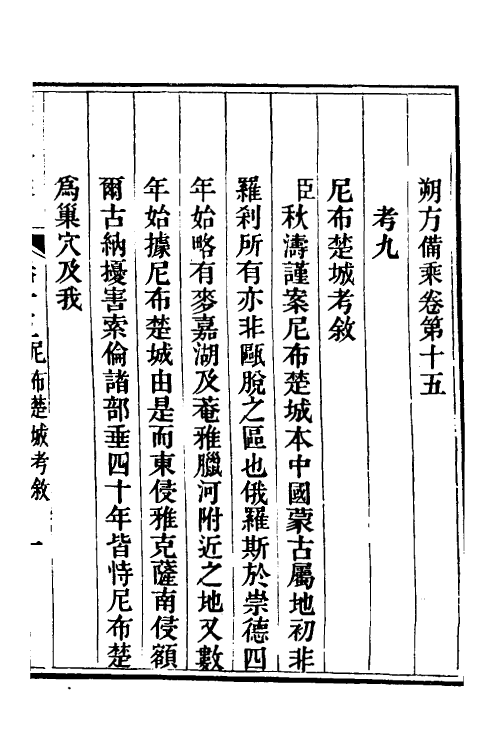 朔方備乘卷第十五
考九
尼布楚城考敘
臣秋濤謹案尼布楚城本中國蒙古屬地初非
羅刹所有亦非甌脫之區也俄羅斯於崇德四
年始略有麥嘉湖及菴雅臘河附近之地又數
年始據尼布楚城由是而東侵雅克薩南侵額
爾古納擾害索倫諸部垂四十年皆恃尼布楚
為巢穴及我
尼布楚城考敘 一